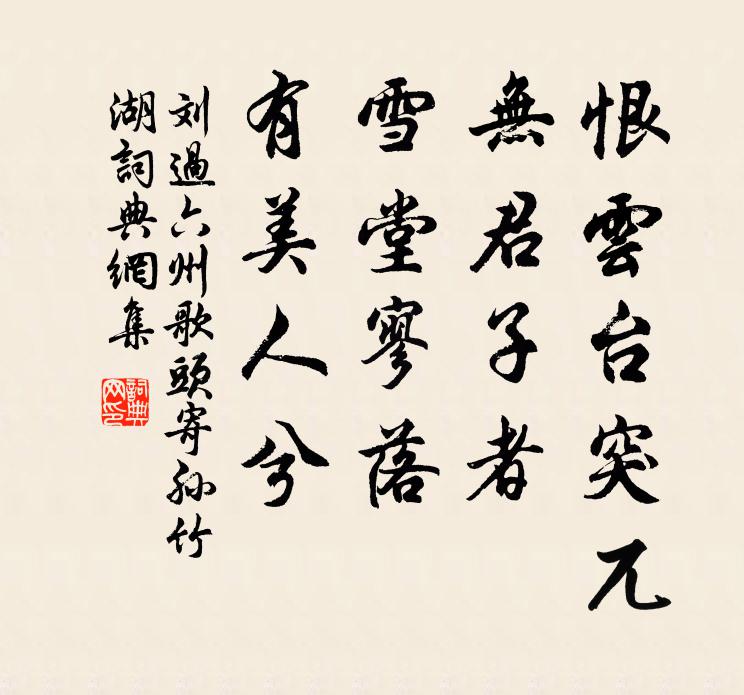 恨雲台突兀
無君子者
雪堂寥落
有美人兮
刘過六州歌頭寄孙竹
湖詞典網集
詞典
网印